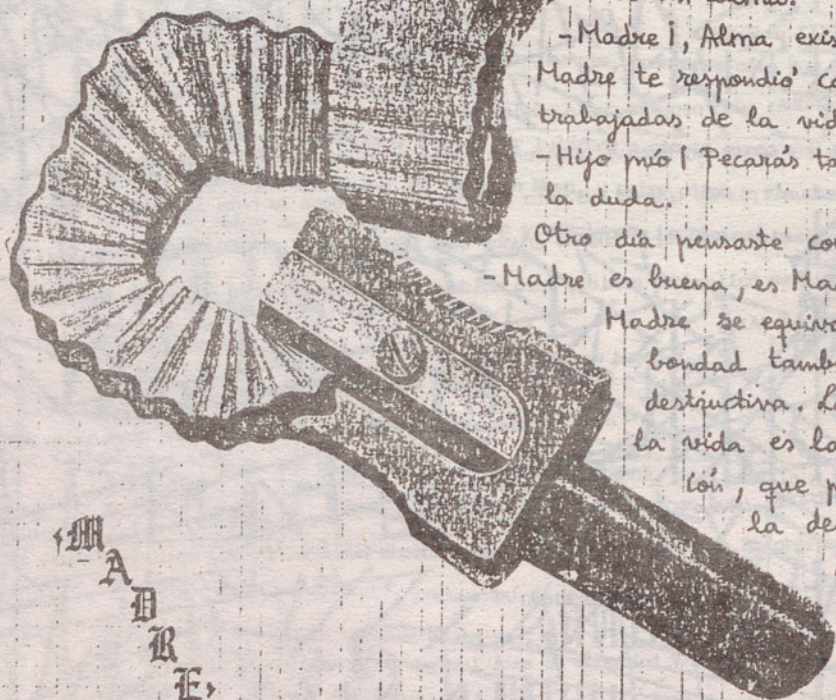 -Madre!, Alma exis
Madre te respondió c
trabajadas de la vid
-Hijo mío! Pecarás ta
la duda.
Otro día pensaste co
-Madre es buena, es Ma
Madre se equiv
bondad tamb
destructiva.
la vida es lo
ión, que p
la de
'MADRE,